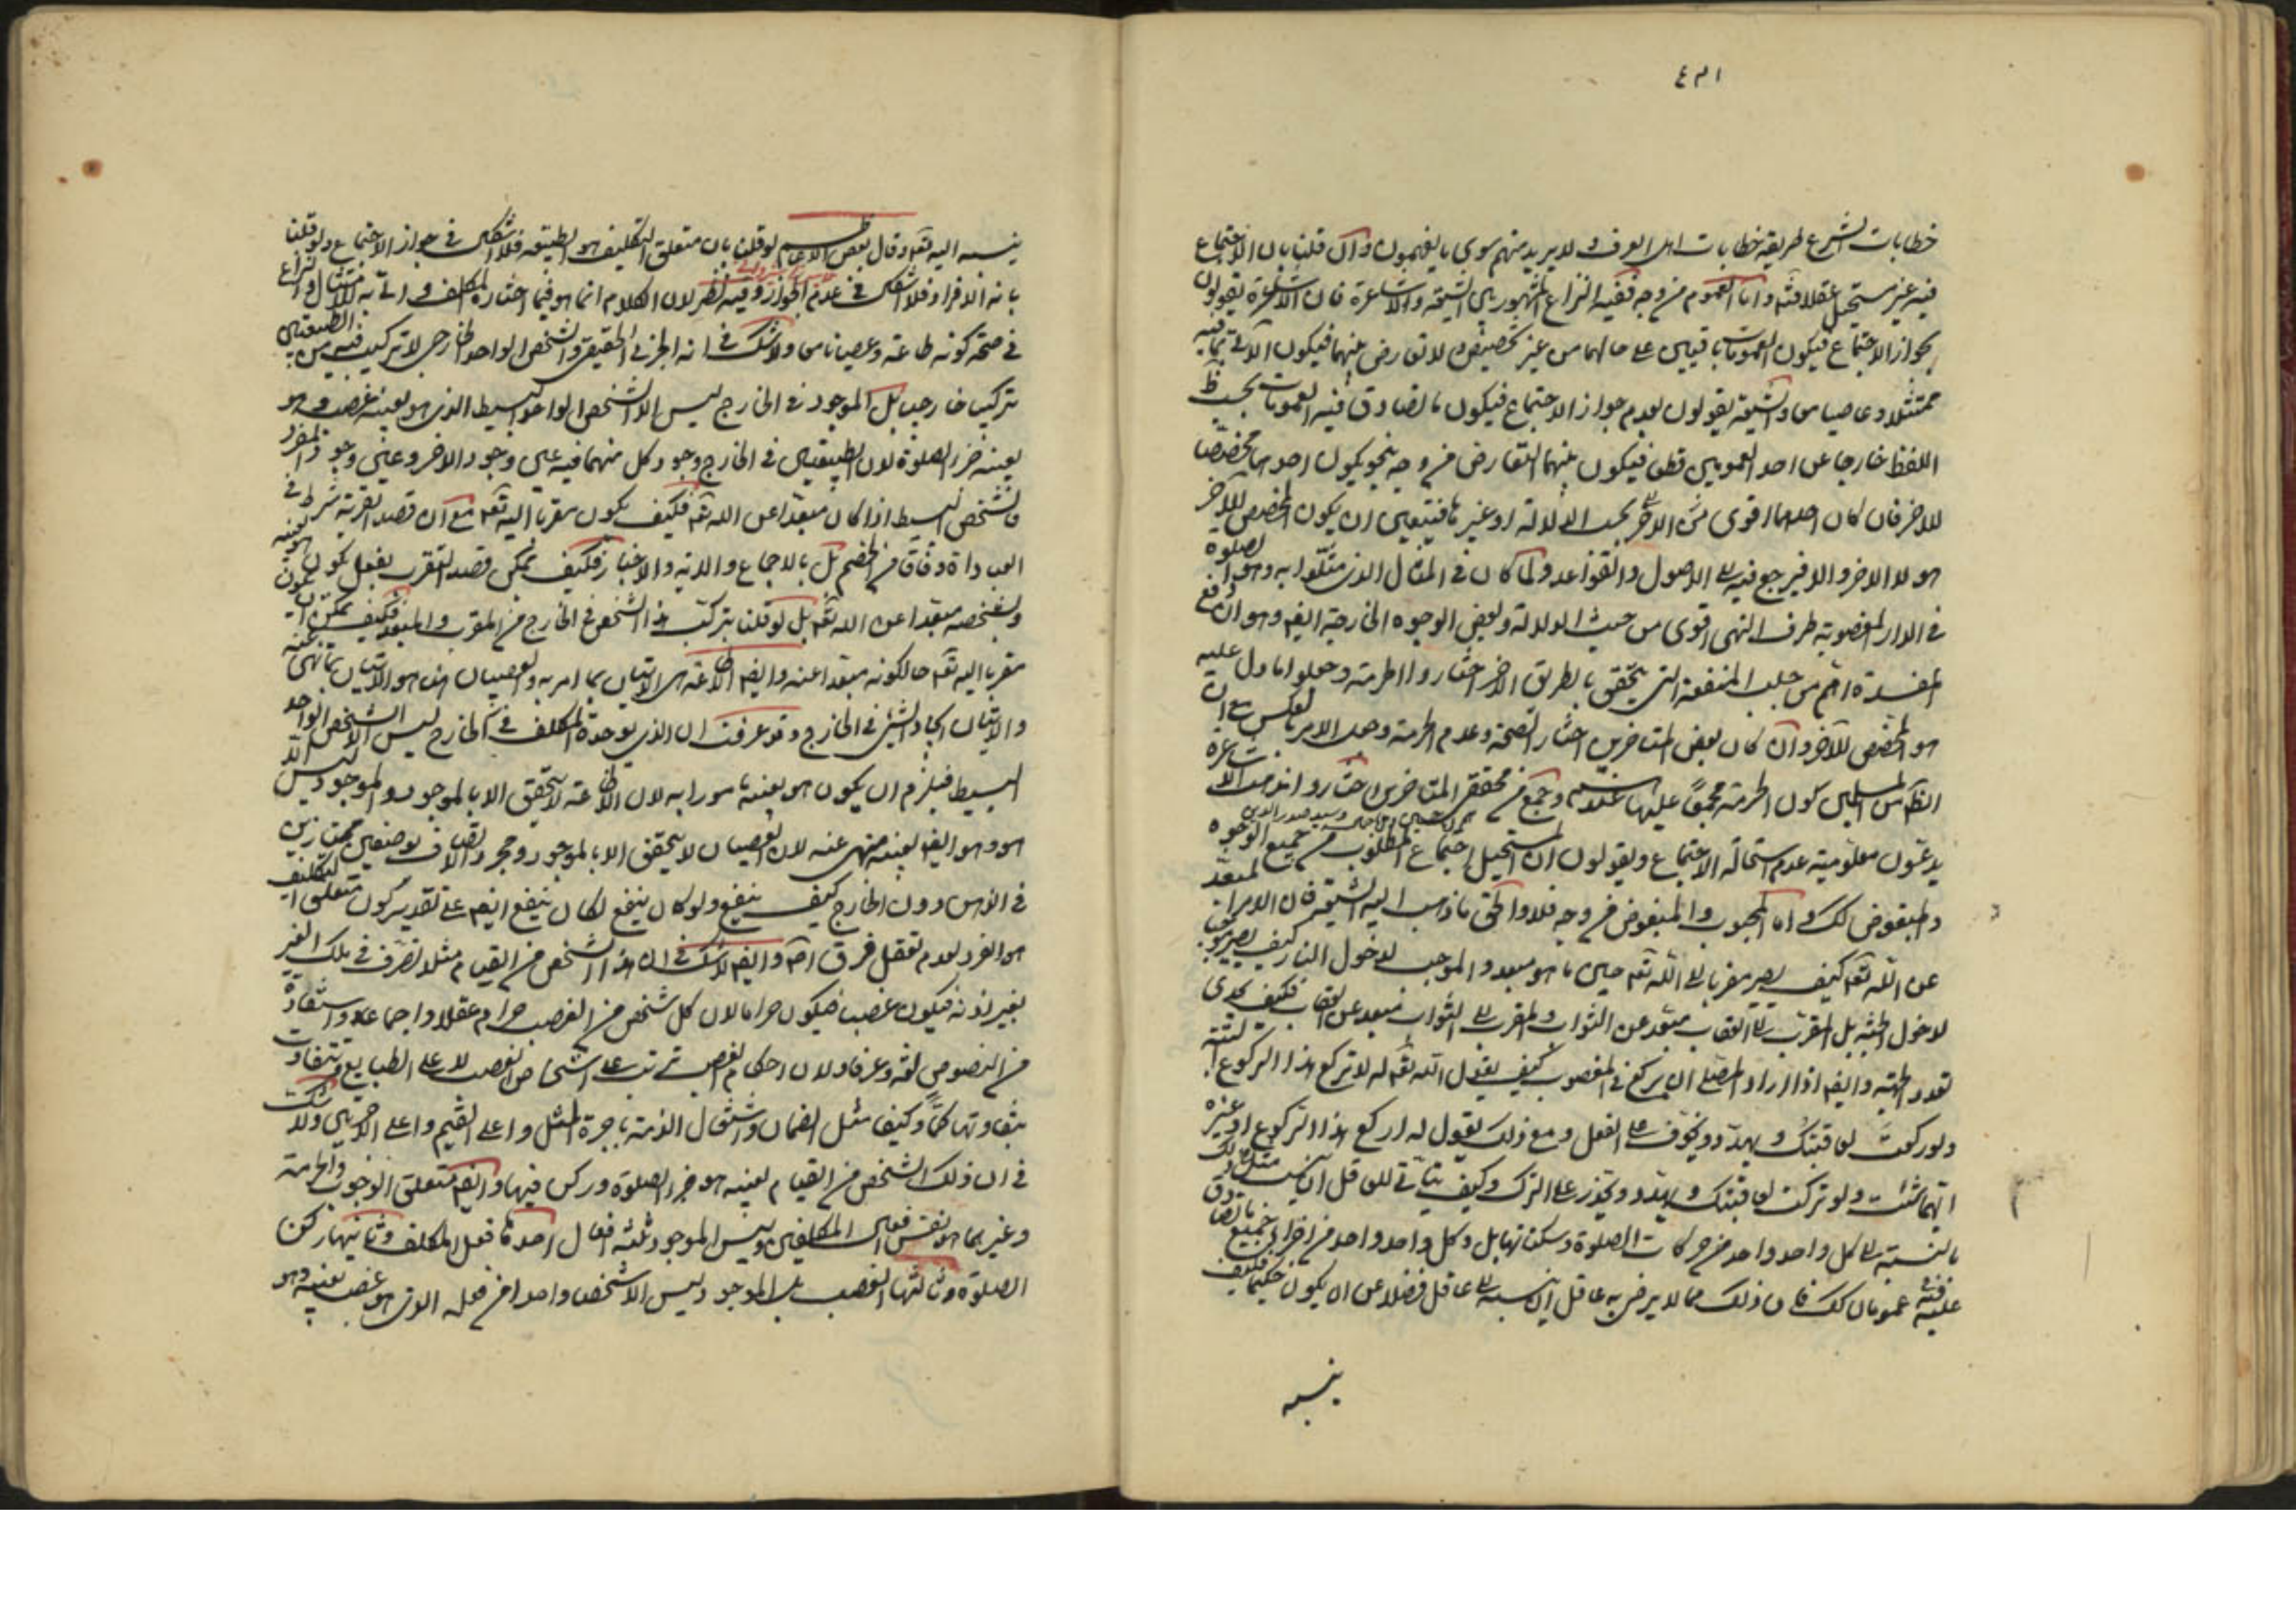 ٤٣١
خطابات الشرع طريقه خطابات اهل العرف ولا يريد منهم سوى ما يفهمون وان قلنا بان الاجتماع
فيه غير مستحيل عقلا فتـ واما العموم من وجه ففيه النزاع المشهور بين الشيعة والاشاعرة فان الاشاعرة يقولون
بجواز الاجتماع فيكون العمومات باقيين على حالهما من غير تخصيص ولا تعارض بينهما فيكون الآتى بما فيه
ممتثلا وعاصيا معا والشيعة يقولون بعدم جواز الاجتماع فيكون ما تصادق فيه العمومات بحسب ظ
اللفظ خارجا عن احد العمومين قطعا فيكون بينهما التعارض من وجه بنحو يكون احدهما مخصصا
للاخر فان كان احدهما اقوى من الاخر بحسب الدلالة او غيرها فيتعين ان يكون المخصص للآخر
هو لا الاخر والا فيرجع فيه الى الاصول والقواعد ولما كان فى المثال الذى مثلوا به وهو الصلوة
فى الدار المغصوبة طرف النهى اقوى من حيث الدلالة وبعض الوجوه الخارجية ايضا وهو ان دفع
المفسدة اهم من جلب المنفعة التى يتحقق بالطريق الاخر اختاروا الحرمة وجعلوا ما دل عليه
هو المخصص للآخر وان كان بعض المتاخرين اختار الصحة وعدم الحرمة وجعل الامر بالعكس مع ان
الظ من المسلمين كون الحرمة مجمعا عليها عندهم وجمع من محققى المتاخرين اختاروا مذهب الاشاعرة
يدعون معلومية عدم استحالة الاجتماع ويقولون ان المستحيل اجتماع المطلوب من جميع الوجوه
والمبغوض كك واما المحبوب والمبغوض من وجه فلا والحق ما ذهب اليه الشيعة فان الامر المبعد
عن الله تعه كيف يصير مقربا الى الله تعه حين ما هو مبعد والموجب لدخول النار كيف يصير موجبا
لدخول الجنة بل المقرب الى العقاب مبعد عن الثواب والمقرب الى الثواب مبعد عن العقاب فكيف يجدى
تعدد الجهة وايضا اذا اراد المصلى ان يركع فى المغصوب كيف يقول الله تعه له لا تركع هذا الركوع البتة
ولو ركعت لعاقبتك ويهدد ويخوف على الفعل ومع ذلك يقول له اركع هذا الركوع او غيره
ايهما شئت ولو تركت لعاقبتك ويهدد ويحذر على الترك وكيف يتاتى للعاقل ان يكون مثل ذلك
بالنسبة الى كل واحد واحد من حركات الصلوة وسكناتها بل وكل واحد واحد من اجزاء جميع ما تصادق
عليه فيه عمومان كك فان ذلك مما لا يرضى به عاقل ان ينسبه الى عاقل فضلا عن ان يكون حكيما فكيف
ينسبه
ينسبه اليه تعه وقال بعض الاعلام لو قلنا بان متعلق التكليف هو الطبيعة فلا اشكال فى جواز الاجتماع ولو قلنا
بانه الافراد فلا اشكال فى عدم الجواز وفيه نظر لان الكلام انما هو فيما اختاره المكلف واتى به للامتثال والنزاع
فى صحة كونه طاعة وعصيانا معا ولا شك فى انه الجزئى الحقيقى والشخص الواحد الخارجى لا تركيب فيه من الطبيعتين
تركيبا خارجيا بل الموجود فى الخارج ليس الا الشخص الواحد البسيط الذى هو بعينه غصب وهو
بعينه جزء الصلوة لان الطبيعتين فى الخارج وجود كل منهما فيه عين وجود الاخر وعين وجود الفرد
فالشخص البسيط اذا كان مبعدا عن الله تعه فكيف يكون مقربا اليه تعه مع ان قصد القربة شرط فى
العبادة وفاقا من الخصم بل بالاجماع والاية والاخبار فكيف يمكن قصد التقرب بفعل يكون هو بعينه
وبشخصه مبعدا عن الله تعه بل لو قلنا بتركب هذا الشخص فى الخارج من المقرب والمبعد فكيف يمكن ان يكون
مقربا اليه تعه حالكونه مبعدا عنه وايضا الاطاعة هى الاتيان بما امر به والعصيان هو الاتيان بما نهى عنه
والاتيان ايجاد الشئ فى الخارج وقد عرفت ان الذى يوجده المكلف فى الخارج ليس الا الشخص الواحد
البسيط فيلزم ان يكون هو بعينه مامورا به لان الاطاعة لا يتحقق الا بالموجود والموجود ليس الا
هو وهو ايضا بعينه منهى عنه لان العصيان لا يتحقق الا بالموجود ومجرد الاتصاف بوصفين ممتازين
فى الذهن دون الخارج كيف ينفع ولو كان ينفع لكان ينفع ايضا على تقدير كون متعلق التكليف
هو الفرد لعدم تعقل فرق اصلا وايضا لا شك فى ان هذا الشخص من القيام مثلا تصرف فى ملك الغير
بغير اذنه فيكون غصبا فيكون حراما لان كل شخص من الغصب حرام عقلا واجماعا واستفادة
من النصوص لغة وعرفا ولان احكام الغصب ترتب على اشخاص الغصب لا على الطبايع وتتفاوت
بتفاوتها كما وكيفا مثل الضمان واشتغال الذمة باجرة المثل واعلى القيم واعلى الاجرين ولا شك
فى ان ذلك الشخص من القيام بعينه هو جزء الصلوة وركن فيها وايضا متعلق الوجوب والحرمة
وغيرهما هو نفس افعال المكلفين وليس الموجود ثلثة افعال احدها فعل المكلف وثانيها ركن
الصلوة وثالثها الغصب بل الموجود ليس الا شخصا واحدا من فعله الذى هو غصب بعينه وهو